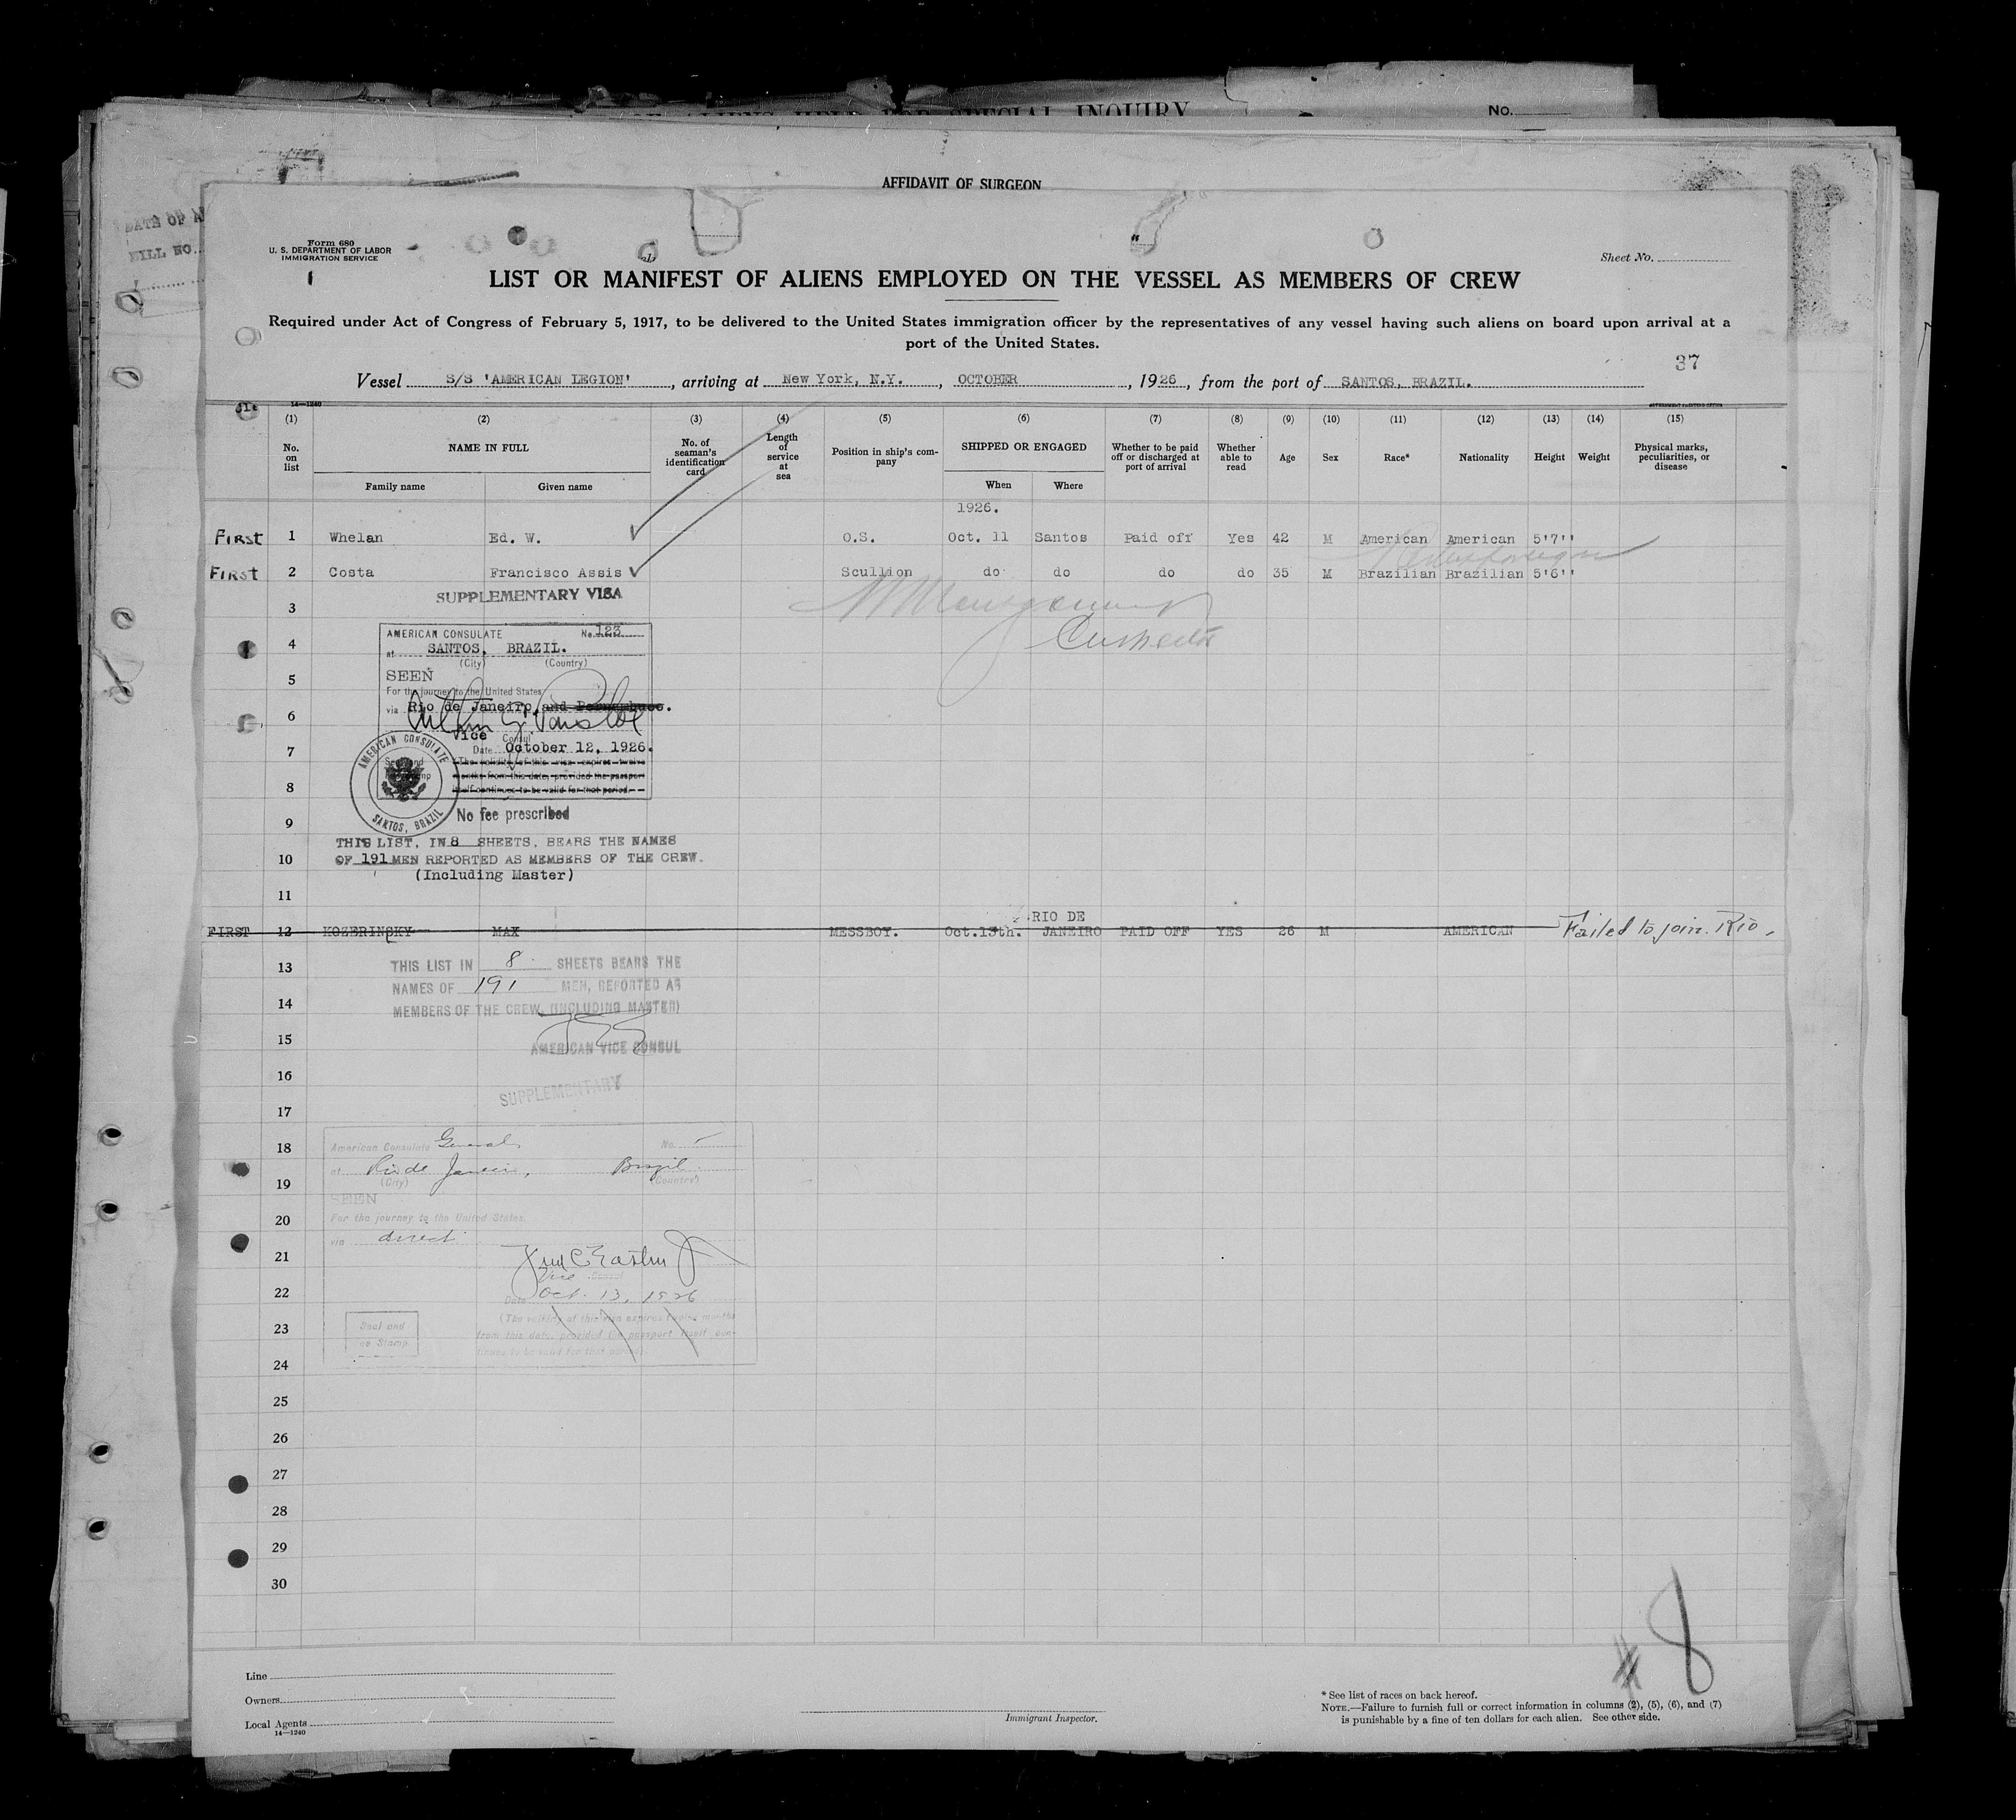 OF ALIENS HELD FOR SPECIAL INQUIRY
No.
AFFIDAVIT OF SURGEON
DATE OF A
BILL NO.
Form 680
U. S. DEPARTMENT OF LABOR
IMMIGRATION SERVICE
Sheet No.
LIST OR MANIFEST OF ALIENS EMPLOYED ON THE VESSEL AS MEMBERS OF CREW
Required under Act of Congress of February 5, 1917, to be delivered to the United States immigration officer by the representatives of any vessel having such aliens on board upon arrival at a
port of the United States.
37
Vessel S/S 'AMERICAN LEGION', arriving at New York, N.Y., OCTOBER, 1926, from the port of SANTOS, BRAZIL.
14—1240 GOVERNMENT PRINTING OFFICE
(1) (2) (3) (4) (5) (6) (7) (8) (9) (10) (11) (12) (13) (14) (15)
No. on list NAME IN FULL Family name Given name No. of seaman's identification card Length of service at sea Position in ship's company SHIPPED OR ENGAGED When Where Whether to be paid off or discharged at port of arrival Whether able to read Age Sex Race* Nationality Height Weight Physical marks, peculiarities, or disease
1926.
First 1 Whelan Ed. W. O.S. Oct. 11 Santos Paid off Yes 42 M American American 5'7''
First 2 Costa Francisco Assis Scullion do do do do 35 M Brazilian Brazilian 5'6''
SUPPLEMENTARY VISA
3
AMERICAN CONSULATE No. 123
4
at SANTOS, BRAZIL.
(City) (Country)
5
SEEN
For the journey to the United States
6
via Rio de Janeiro and Pernambuco.
Vice Consul
7
Date October 12, 1926.
(The validity of this visa expires twelve
months from this date, provided the passport
8
itself continues to be valid for that period.
AMERICAN CONSULATE
SANTOS, BRAZIL
No fee prescribed
9
THIS LIST, IN 8 SHEETS, BEARS THE NAMES
10
OF 191 MEN REPORTED AS MEMBERS OF THE CREW.
(Including Master)
11
RIO DE
FIRST 12 KOZERINSKY MAX MESSBOY. Oct.13th. JANEIRO PAID OFF YES 26 M AMERICAN Failed to join Rio.
13
THIS LIST IN 8 SHEETS BEARS THE
NAMES OF 191 MEN, REPORTED AS
14
MEMBERS OF THE CREW. (INCLUDING MASTER)
15
AMERICAN VICE CONSUL
16
SUPPLEMENTARY
17
18
American Consulate General No.
at Rio de Janeiro, Brazil
(City) (Country)
19
SEEN
20
For the journey to the United States.
via direct
21
Vice Consul
22
Date Oct. 13, 1926
(The validity of this visa expires twelve months
23
from this date, provided the passport itself con-
tinues to be valid for that period).
Seal and
Stamp.
24
25
26
27
28
29
30
# 8
Line
Owners
Local Agents
14—1240
Immigrant Inspector.
* See list of races on back hereof.
NOTE.—Failure to furnish full or correct information in columns (2), (5), (6), and (7)
is punishable by a fine of ten dollars for each alien. See other side.